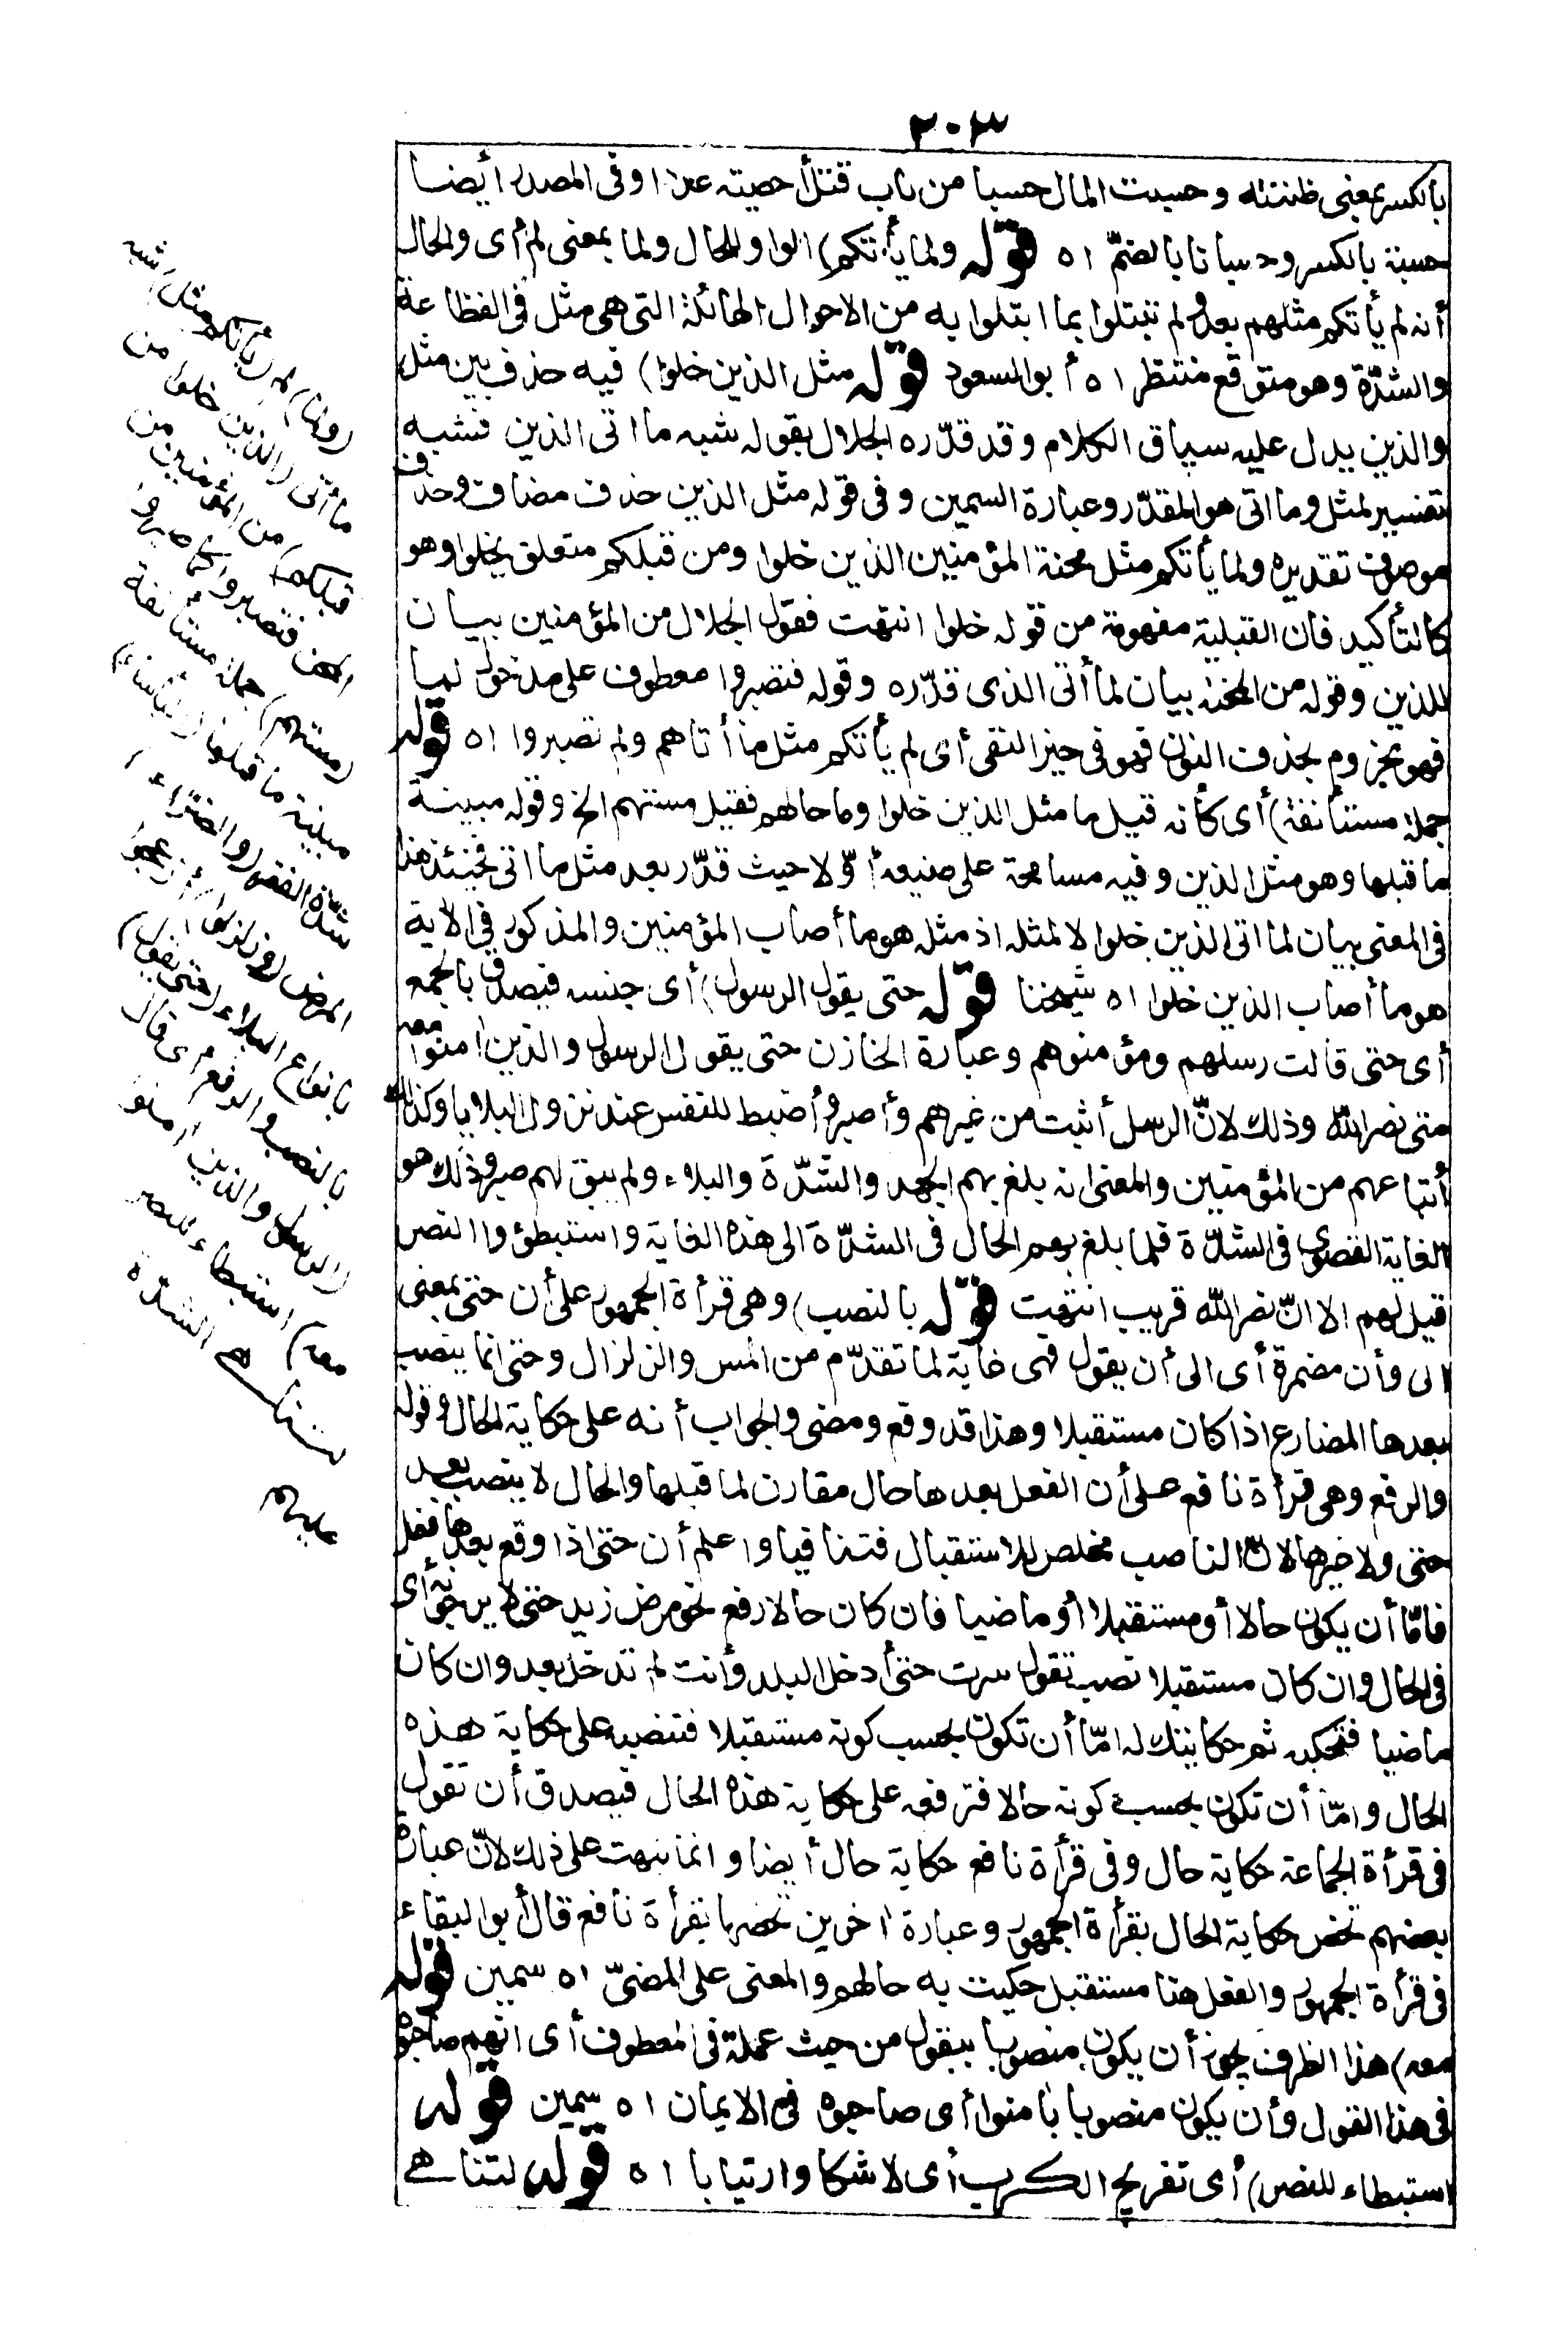 ٢٠٣
بالكسر بمعنى ظننته وحسبت المال حسبا من باب قتل أحصيته عددا وفى المصدر أيضا
حسبة بالكسر وحسبانا بالضمّ اه قوله ولما يأتكم) الواو للحال ولما بمعنى لم أى والحال
أنه لم يأتكم مثلهم بعد ولم تبتلوا بما ابتلوا به من الاحوال الهائلة التى هى مثل فى الفظاعة
والشدّة وهو متوقع منتظر اه أبو السعود قوله مثل الذين خلوا) فيه حذف بين مثل
والذين يدل عليه سياق الكلام وقد قدّره الجلال بقوله شبه ما اتى الذين فشبه
تفسير لمثل وما اتى هو المقدّر وعبارة السمين وفى قوله مثل الذين حذف مضاف وحذف
موصوف تقديره ولما يأتكم مثل محنة المؤمنين الذين خلوا ومن قبلكم متعلق بخلوا وهو
كالتأكيد فان القبلية مفهومة من قوله خلوا انتهت فقول الجلال من المؤمنين بيان
للذين وقوله من المحن بيان لما أتى الذى قدّره وقوله فتصبروا معطوف على مدخول لما
فهو مجزوم بحذف النون فهو فى حيز النفى أى لم يأتكم مثل ما أتاهم ولم تصبروا اه قوله
جملة مستأنفة) أى كأنه قيل ما مثل الذين خلوا وما حالهم فقيل مستهم الخ وقوله مبينة
ما قبلها وهو مثل الذين وفيه مسامحة على صنيعه أوّلا حيث قدّر بعد مثل ما اتى فحينئذ هذا
فى المعنى بيان لما اتى الذين خلوا لا لمثله اذ مثله هو ما أصاب المؤمنين والمذكور فى الآية
هو ما أصاب الذين خلوا اه شيخنا قوله حتى يقول الرسول) أى جنسه فيصدق بالجمع
أى حتى قالت رسلهم ومؤمنوهم وعبارة الخازن حتى يقول الرسول والذين امنوا معه
متى نصر الله وذلك لانّ الرسل أثبت من غيرهم وأصبر وأضبط للنفس عند نزول البلايا وكذلك
أتباعهم من المؤمنين والمعنى انه بلغ بهم الجهد والشدّة والبلاء ولم يبق لهم صبر وذلك هو
الغاية القصوى فى الشدّة فلما بلغ بهم الحال فى الشدّة الى هذه الغاية واستبطؤوا النصر
قيل لهم الا انّ نصر الله قريب انتهت قوله بالنصب) وهى قرأة الجمهور على أن حتى بمعنى
الى وأن مضمرة أى الى أن يقول فهى غاية لما تقدّم من المس والزلزال وحتى انما ينصب
بعدها المضارع اذا كان مستقبلا وهذا قد وقع ومضى والجواب أنه على حكاية الحال وقوله
والرفع وهى قرأة نافع على أن الفعل بعدها حال مقارن لما قبلها والحال لا ينصب بعد
حتى ولا غيرها لانّ الناصب مخلص للاستقبال فتنافيا واعلم أن حتى اذا وقع بعدها فعل
فامّا أن يكون حالا أو مستقبلا أو ماضيا فان كان حالا رفع نحو مرض زيد حتى لا يرجونه أى
فى الحال وان كان مستقبلا نصب تقول سرت حتى أدخل البلد وأنت لم تدخل بعد وان كان
ماضيا فتحكيه ثم حكايتك له امّا أن تكون بحسب كونه مستقبلا فتنصبه على حكاية هذه
الحال وامّا أن تكون بحسب كونه حالا فترفعه على حكاية هذه الحال فيصدق أن تقول
فى قرأة الجماعة حكاية حال وفى قرأة نافع حكاية حال أيضا وانما نبهت على ذلك لانّ عبارة
بعضهم تخص حكاية الحال بقرأة الجمهور وعبارة اخرين تخصها بقرأة نافع قال أبو البقاء
فى قرأة الجمهور والفعل هنا مستقبل حكيت به حالهم والمعنى على المضىّ اه سمين قوله
معه) هذا الظرف يجوز أن يكون منصوبا بيقول من حيث عمله فى المعطوف أى انهم صاحبوه
فى هذا القول وأن يكون منصوبا بامنوا أى صاحبوه فى الايمان اه سمين قوله
استبطاء للنصر) أى تفريج الكرب أى لا شكا وارتيابا اه قوله لتناهى
(ولما) لم (يأتكم مثل) شبه
ما أتى (الذين خلوا من
قبلكم) من المؤمنين من
المحن فتصبروا كما صبروا
(مستهم) جملة مستأنفة
مبينة ما قبلها (البأساء)
شدّة الفقر (والضرّاء)
المرض (وزلزلوا) أزعجوا
بأنواع البلاء (حتى يقول)
بالنصب والرفع أى قال
(الرسول والذين امنوا
معه) استبطاء للنصر
لتناهى الشدّة
عليهم